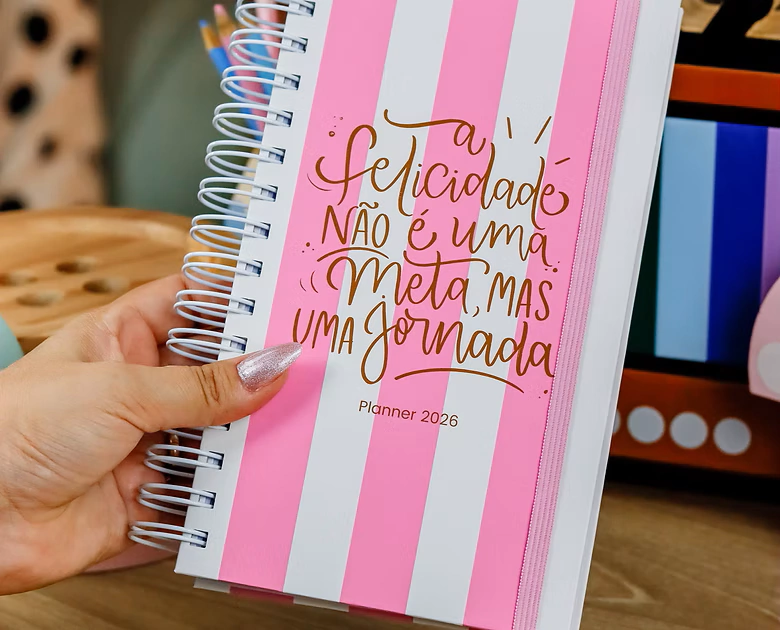 a
felicidade
NÃO é uma
Meta, MAS
UMA Jornada
Planner 2026